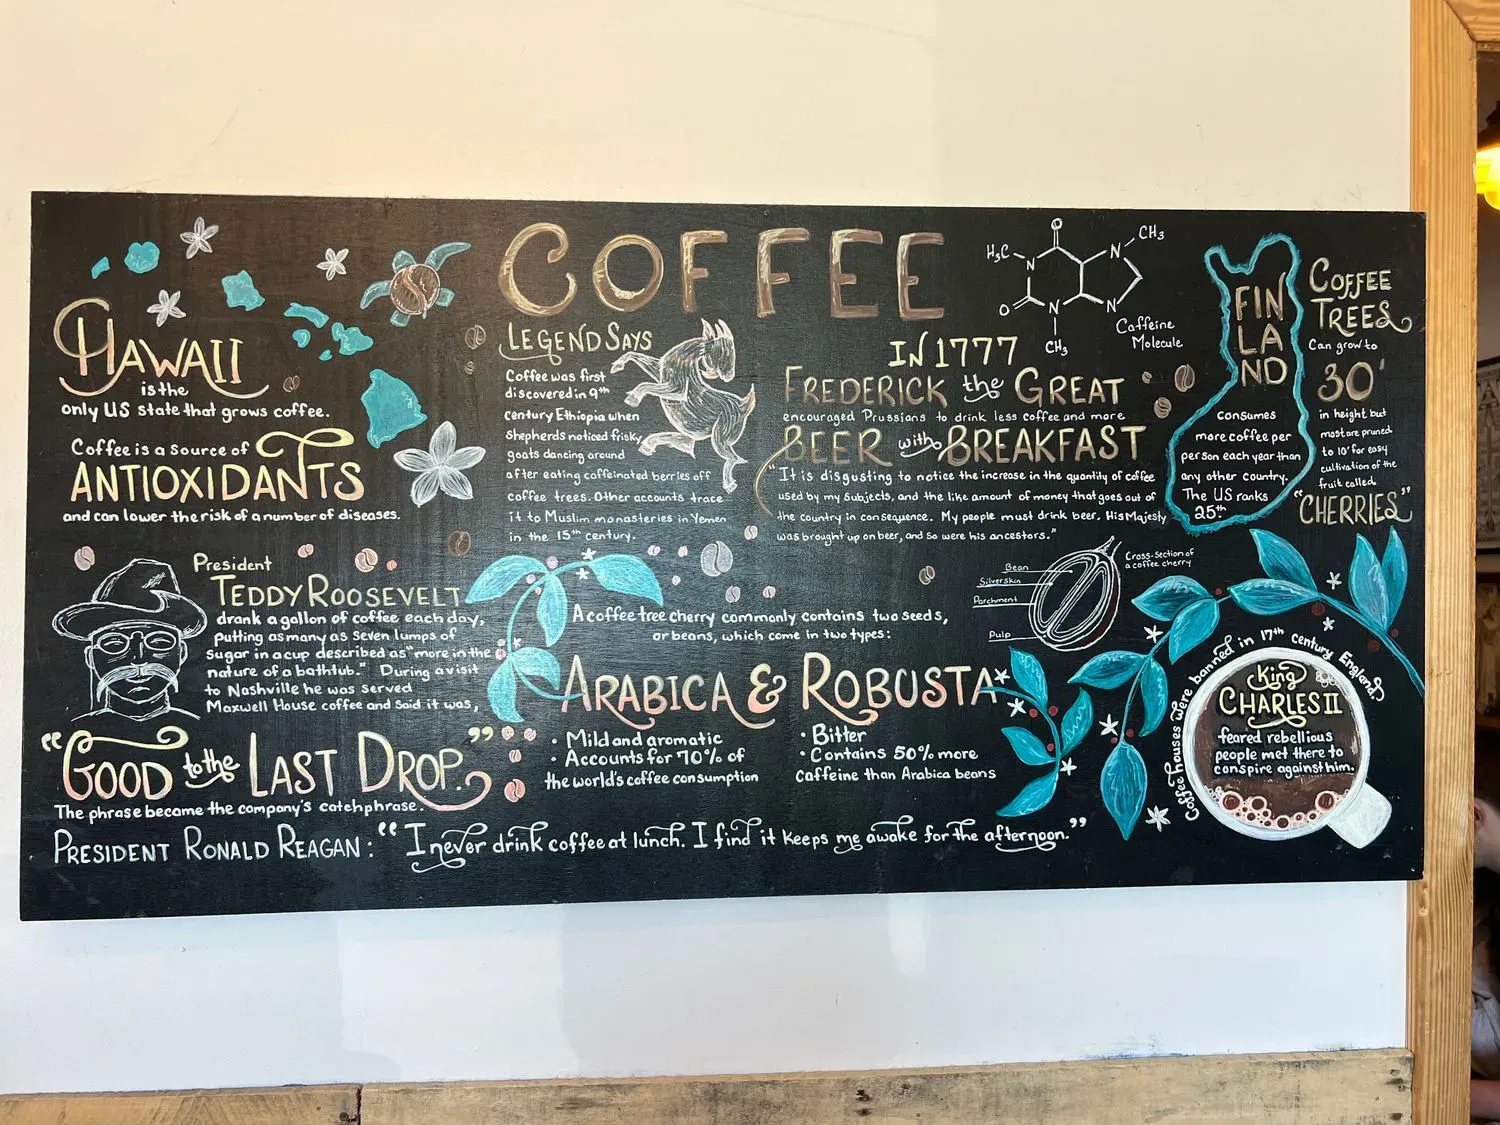 COFFEE
HAWAII
is the
only US state that grows coffee.
Coffee is a source of
ANTIOXIDANTS
and can lower the risk of a number of diseases.
LEGEND SAYS
Coffee was first
discovered in 9th
century Ethiopia when
shepherds noticed frisky
goats dancing around
after eating caffeinated berries off
coffee trees. Other accounts trace
it to Muslim monasteries in Yemen
in the 15th century.
IN 1777
FREDERICK the GREAT
encouraged Prussians to drink less coffee and more
BEER with BREAKFAST
"It is disgusting to notice the increase in the quantity of coffee
used by my subjects, and the like amount of money that goes out of
the country in consequence. My people must drink beer. His Majesty
was brought up on beer, and so were his ancestors."
H3C
O
CH3
N
N
O
N
N
CH3
Caffeine
Molecule
FIN
LA
ND
consumes
more coffee per
person each year than
any other country.
The US ranks
25th
COFFEE
TREES
Can grow to
30'
in height but
most are pruned
to 10' for easy
cultivation of the
fruit called
"CHERRIES"
President
TEDDY ROOSEVELT
drank a gallon of coffee each day,
putting as many as seven lumps of
sugar in a cup described as "more in the
nature of a bathtub." During a visit
to Nashville he was served
Maxwell House coffee and said it was,
"GOOD to the LAST DROP."
The phrase became the company's catchphrase.
A coffee tree cherry commonly contains two seeds,
or beans, which come in two types:
ARABICA & ROBUSTA
• Mild and aromatic
• Accounts for 70% of
the world's coffee consumption
• Bitter
• Contains 50% more
caffeine than Arabica beans
Cross-section of
a coffee cherry
Bean
Silverskin
Parchment
Pulp
Coffee houses were banned in 17th century England
King
CHARLES II
feared rebellious
people met there to
conspire against him.
PRESIDENT RONALD REAGAN: "I never drink coffee at lunch. I find it keeps me awake for the afternoon."